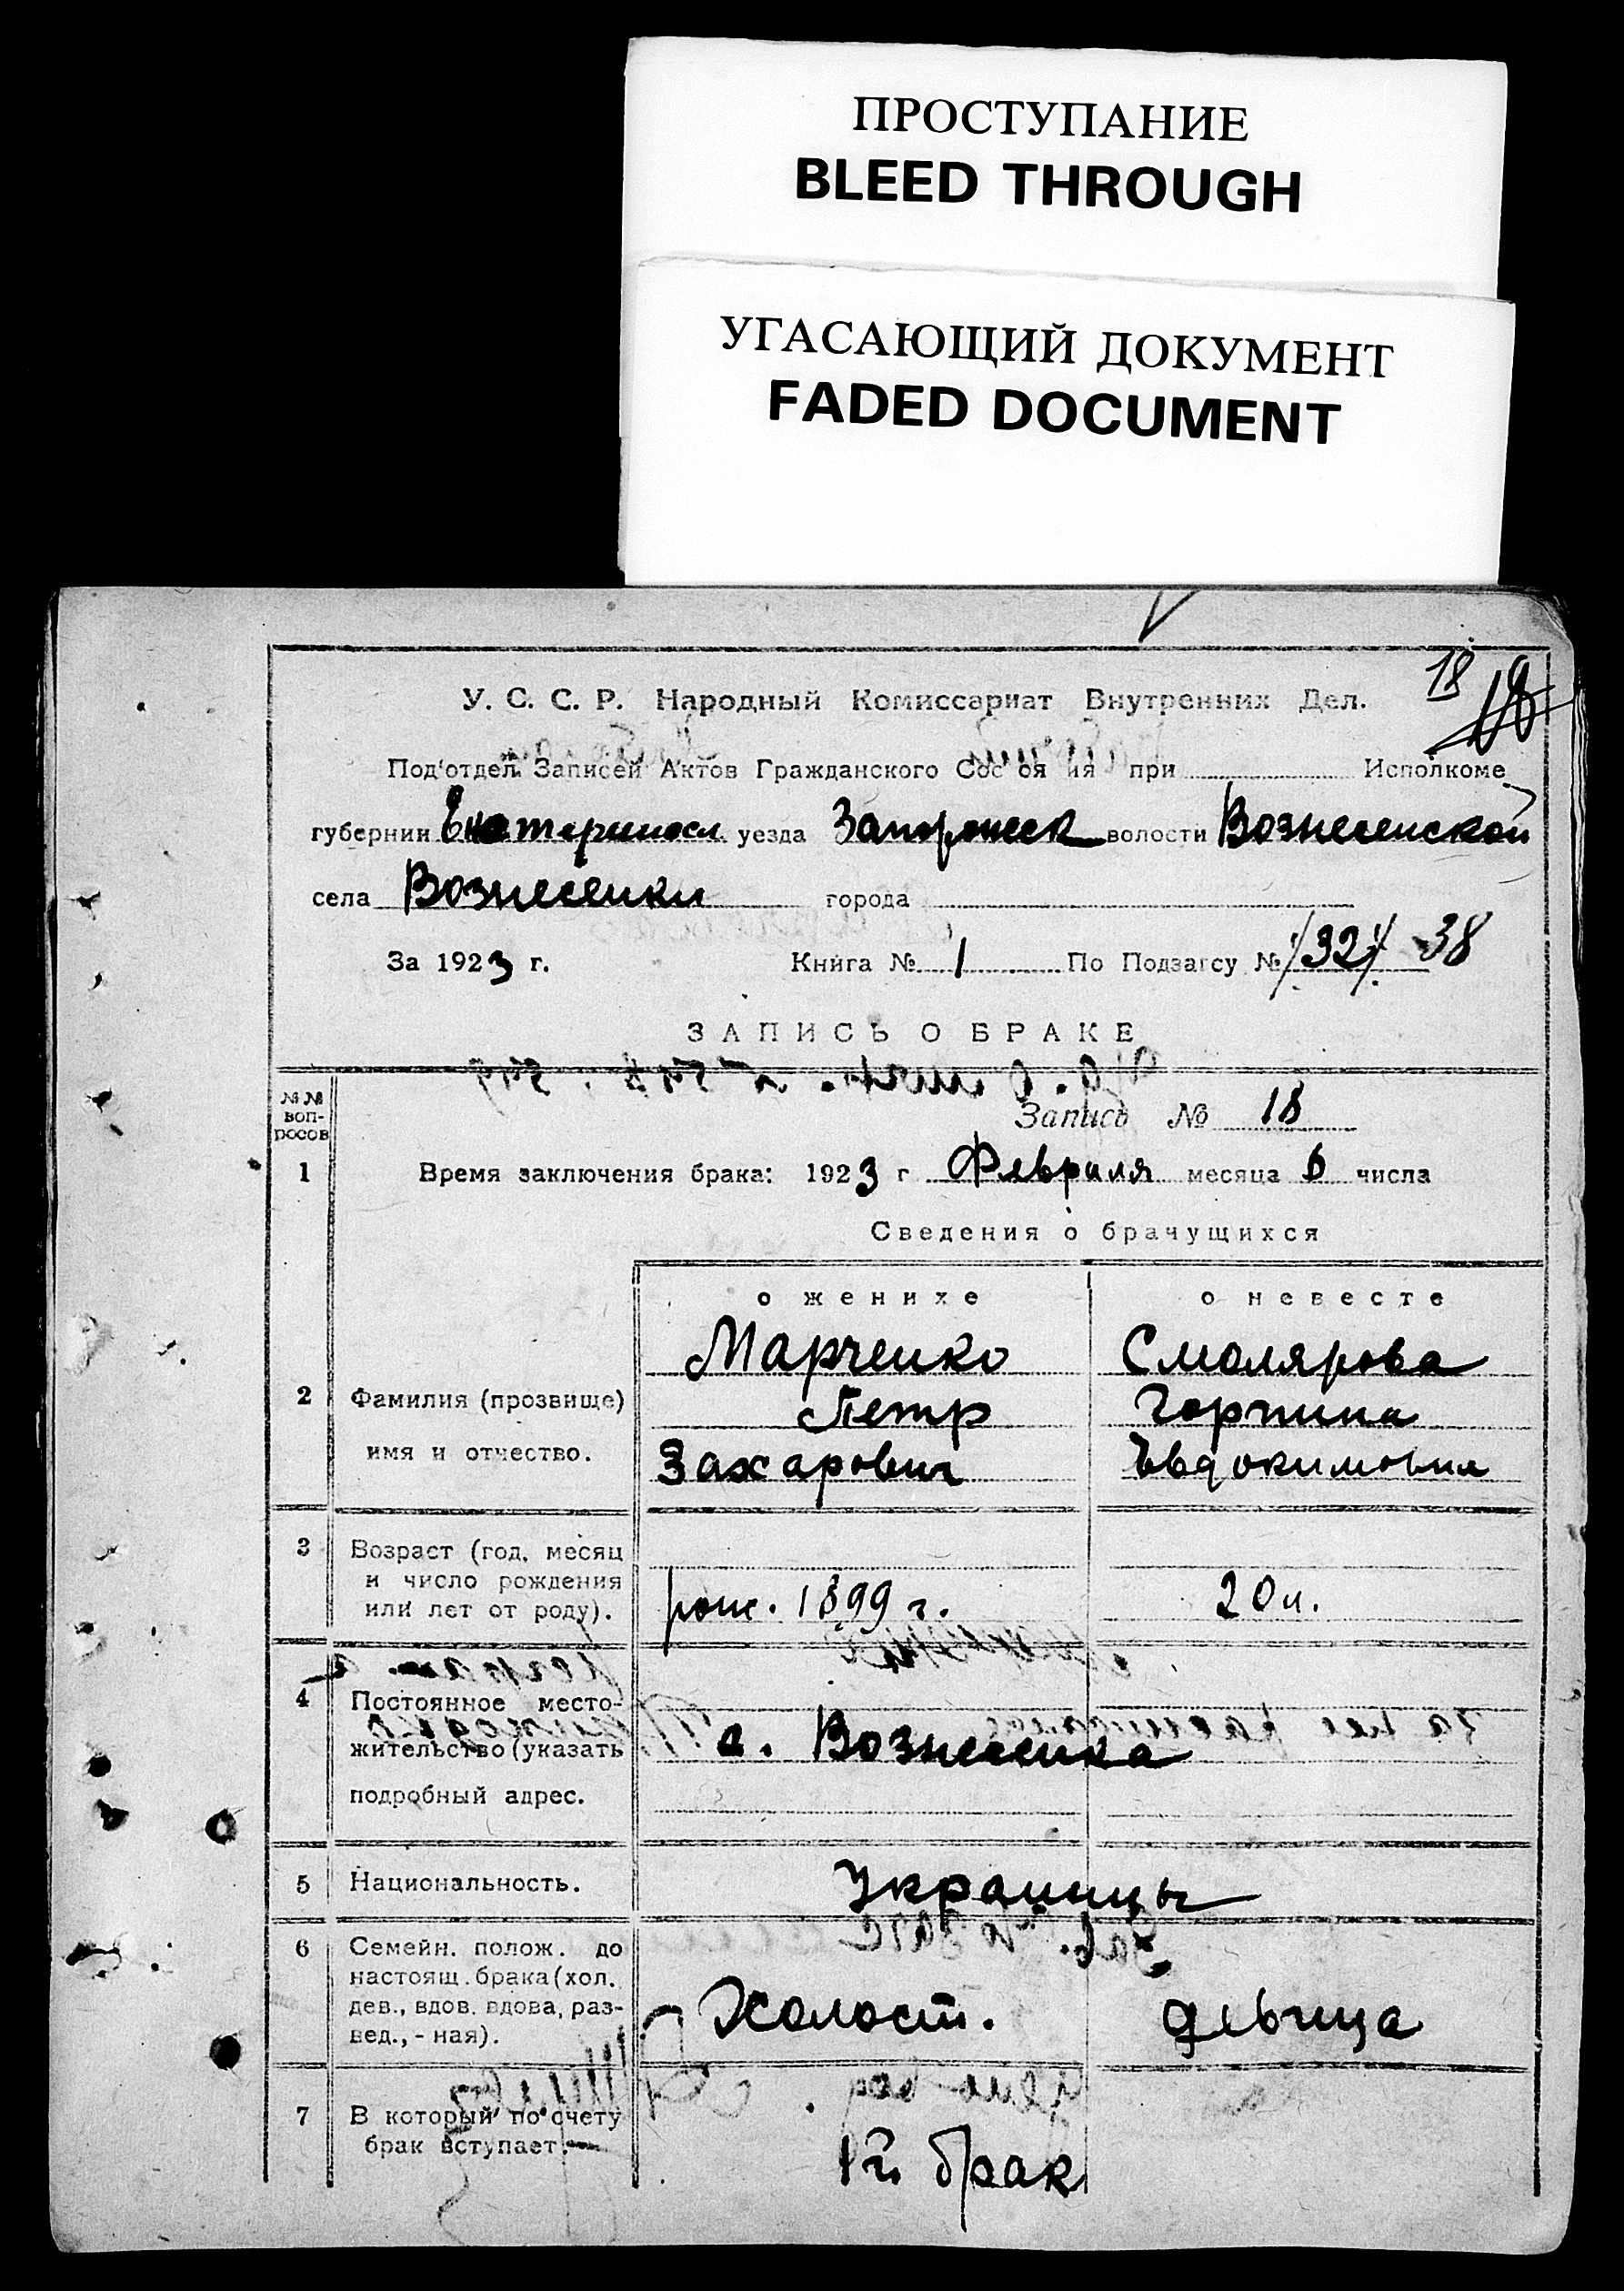 ПРОСТУПАНИЕ
BLEED THROUGH
УГАСАЮЩИЙ ДОКУМЕНТ
FADED DOCUMENT
18
У. С. С. Р. Народный Комиссариат Внутренних Дел.
Под'отдел Записей Актов Гражданского Сос оя ия при Исполкоме
губернии Екатериносл уезда Запорожск волости Вознесенской
села Вознесенки города
За 1923 г. Книга № 1 По Подзагсу № /32/ 38
ЗАПИСЬ О БРАКЕ
№№ воп-росов
Запись № 18
1 Время заключения брака: 1923 г Февраля месяца 6 числа
Сведения о брачущихся
о женихе о невесте
Марченко Смолярова
2 Фамилия (прозвище) Петр Горпина
имя и отчество. Захарович Евдокимовна
3 Возраст (год, месяц
и число рождения
или лет от роду). рож. 1899 г. 20 л.
4 Постоянное место-
жительство (указать с. Вознесенка
подробный адрес.
5 Национальность. Украинцы
6 Семейн. полож. до
настоящ. брака (хол.
дев., вдов. вдова, раз- Холост. девица
вед., - ная).
7 В который по счету
брак вступает. 1й брак